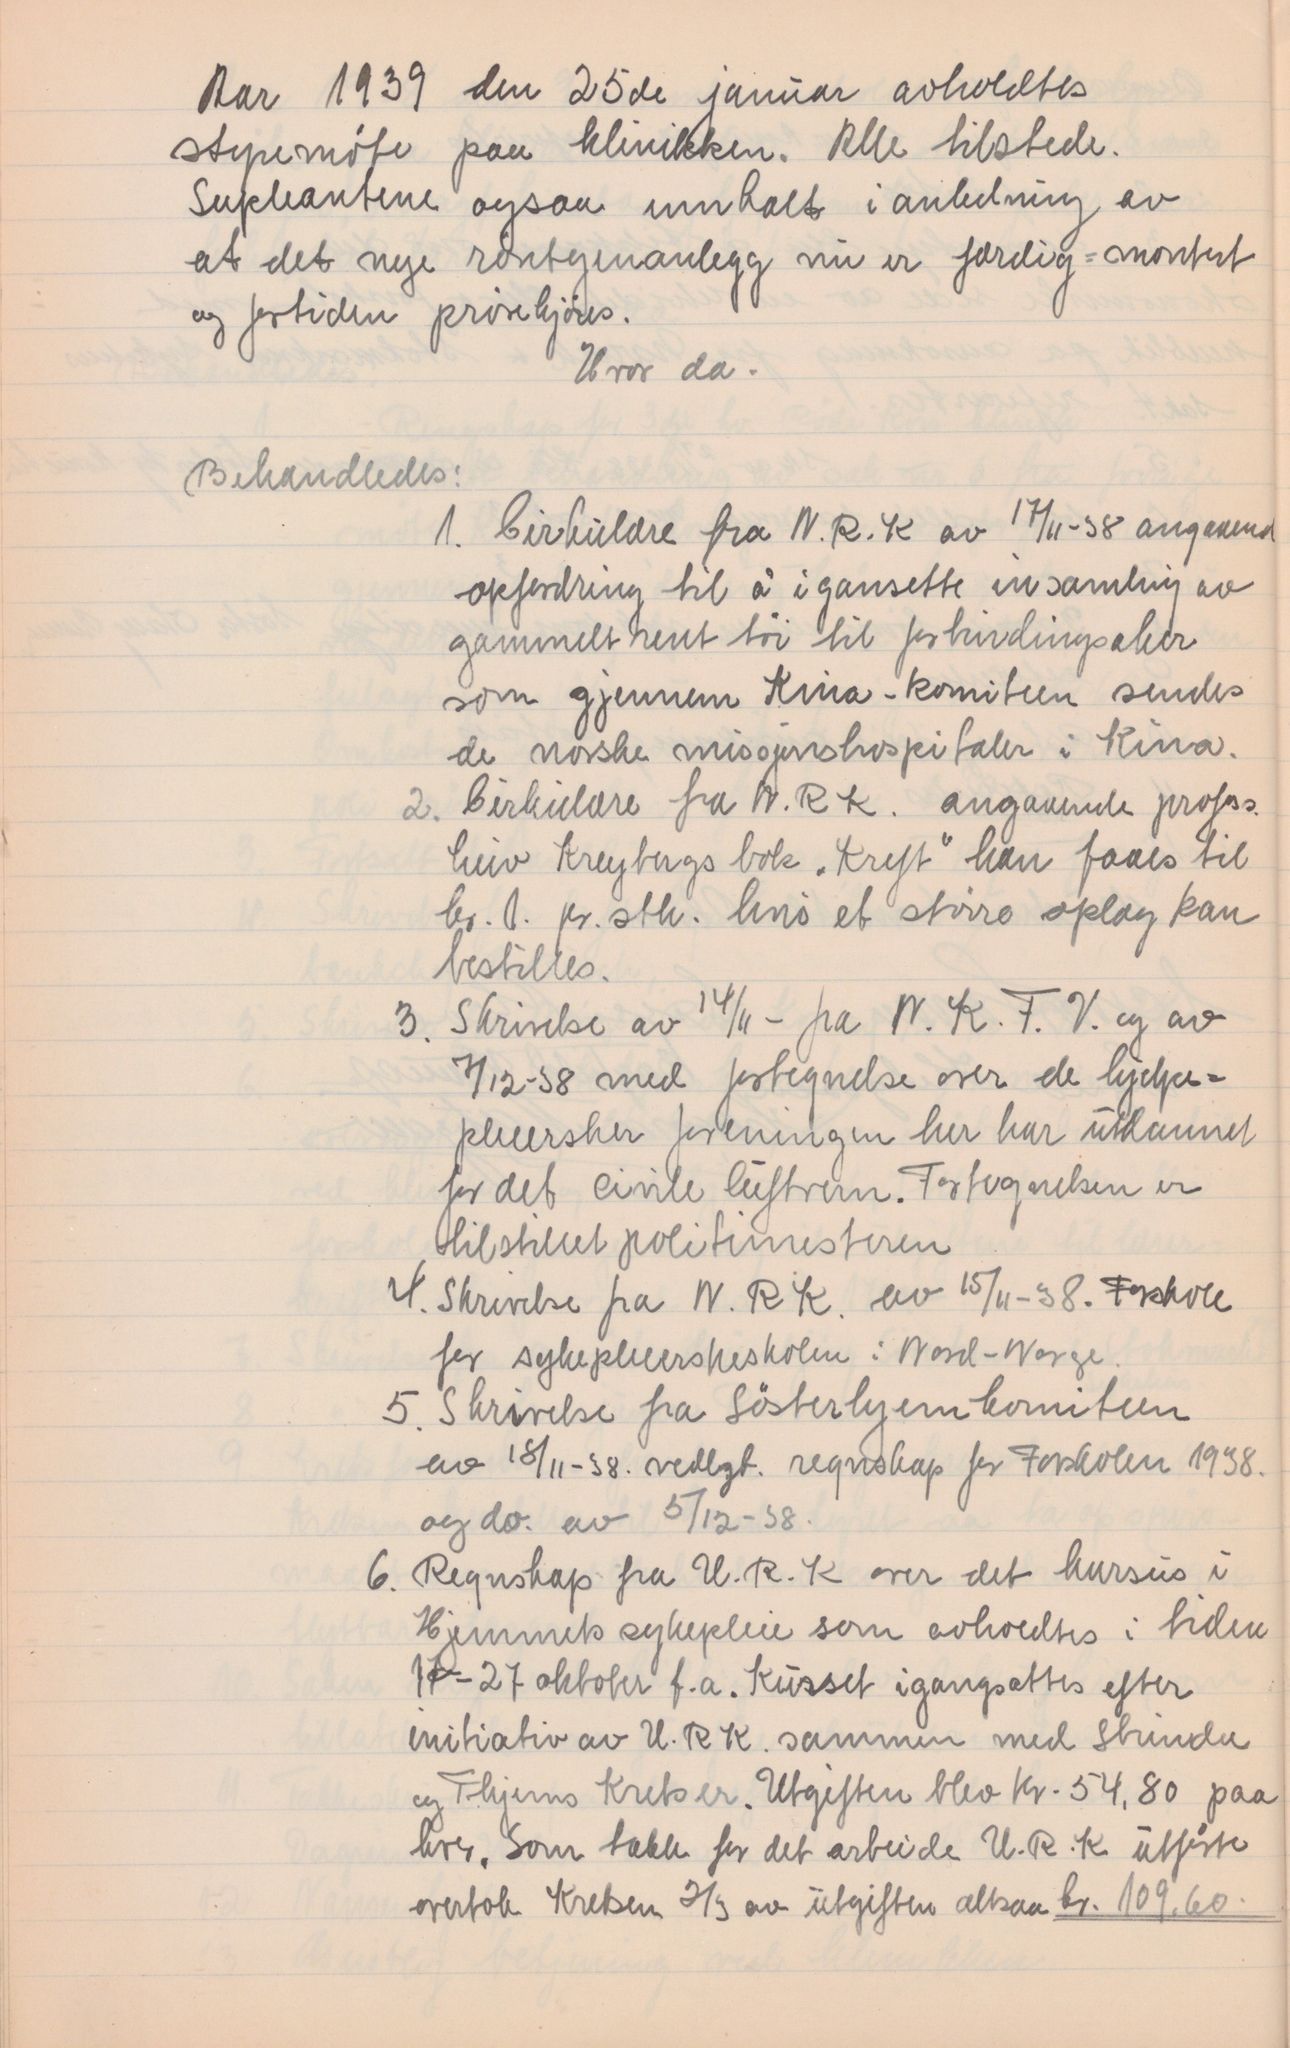 Aar 1939 den 25de januar avholdtes
styremöte paa klinikken. Alle tilstede.
Supleantene ogsaa innkalt i anledning av
at det nye röntgenanlegg nu er færdig=montert
og fortiden prövekjöres.
Hvor da.
Behandledes:
1. Cirkulære fra N.R.K av 17/11-38 angaaend
opfordring til å igansette insamling av
gammelt rent töi til forbindingsaker
som gjennem Kina-komiteen sendes
de norske misjonshospitaler i Kina.
2. Cirkulære fra N.R.K. angaaende profess.
Leiv Kreybergs bok „Kreft" kan faaes til
kr. 1. pr. stk. hvis et större oplag kan
bestilles.
3. Skrivelse av 14/11- fra N.K.F.V. og av
7/12-38 med fortegnelse over de hjelpe=
pleiersker foreningen her har utdannet
for det civile luftvern. Fortegnelsen er
tilstillet politimesteren
4. Skrivelse fra N.R.K. av 15/11-38. Forskole
for sykepleierskeskolen i Nord-Norge.
5. Skrivelse fra Sösterhjemkomiteen
av 18/11-38. vedlagt. regnskap for Forskolen 1938.
og do. av 5/12-38.
6. Regnskap fra U.R.K over det kursus i
Hjemmets sykepleie som avholdtes i tiden
17-27 oktober f.a. Kurset igangsattes efter
initiativ av U.R.K. sammen med Strinda
og Thjems Kretser. Utgiften blev kr. 54,80 paa
hver. Som takk for det arbeide U.R.K utförte
overtok Kretsen 2/3 av utgiften altsaa kr. 109.60.